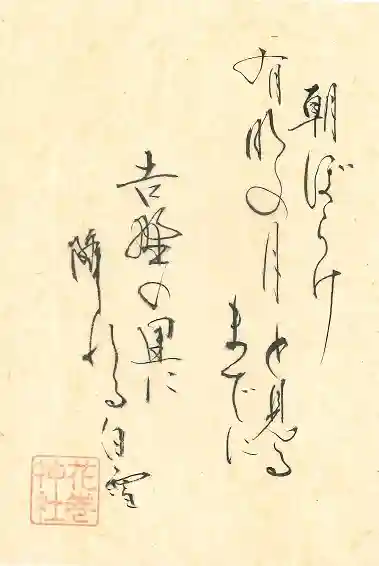 朝ぼらけ
有明の月と見る
までに
吉野の里に
降れる白雪
花巻
神社